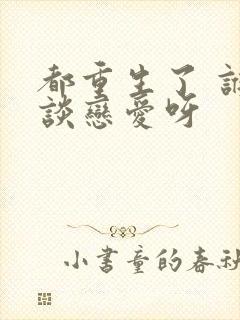 都重生了 誰
談戀愛呀
小書童的春秋